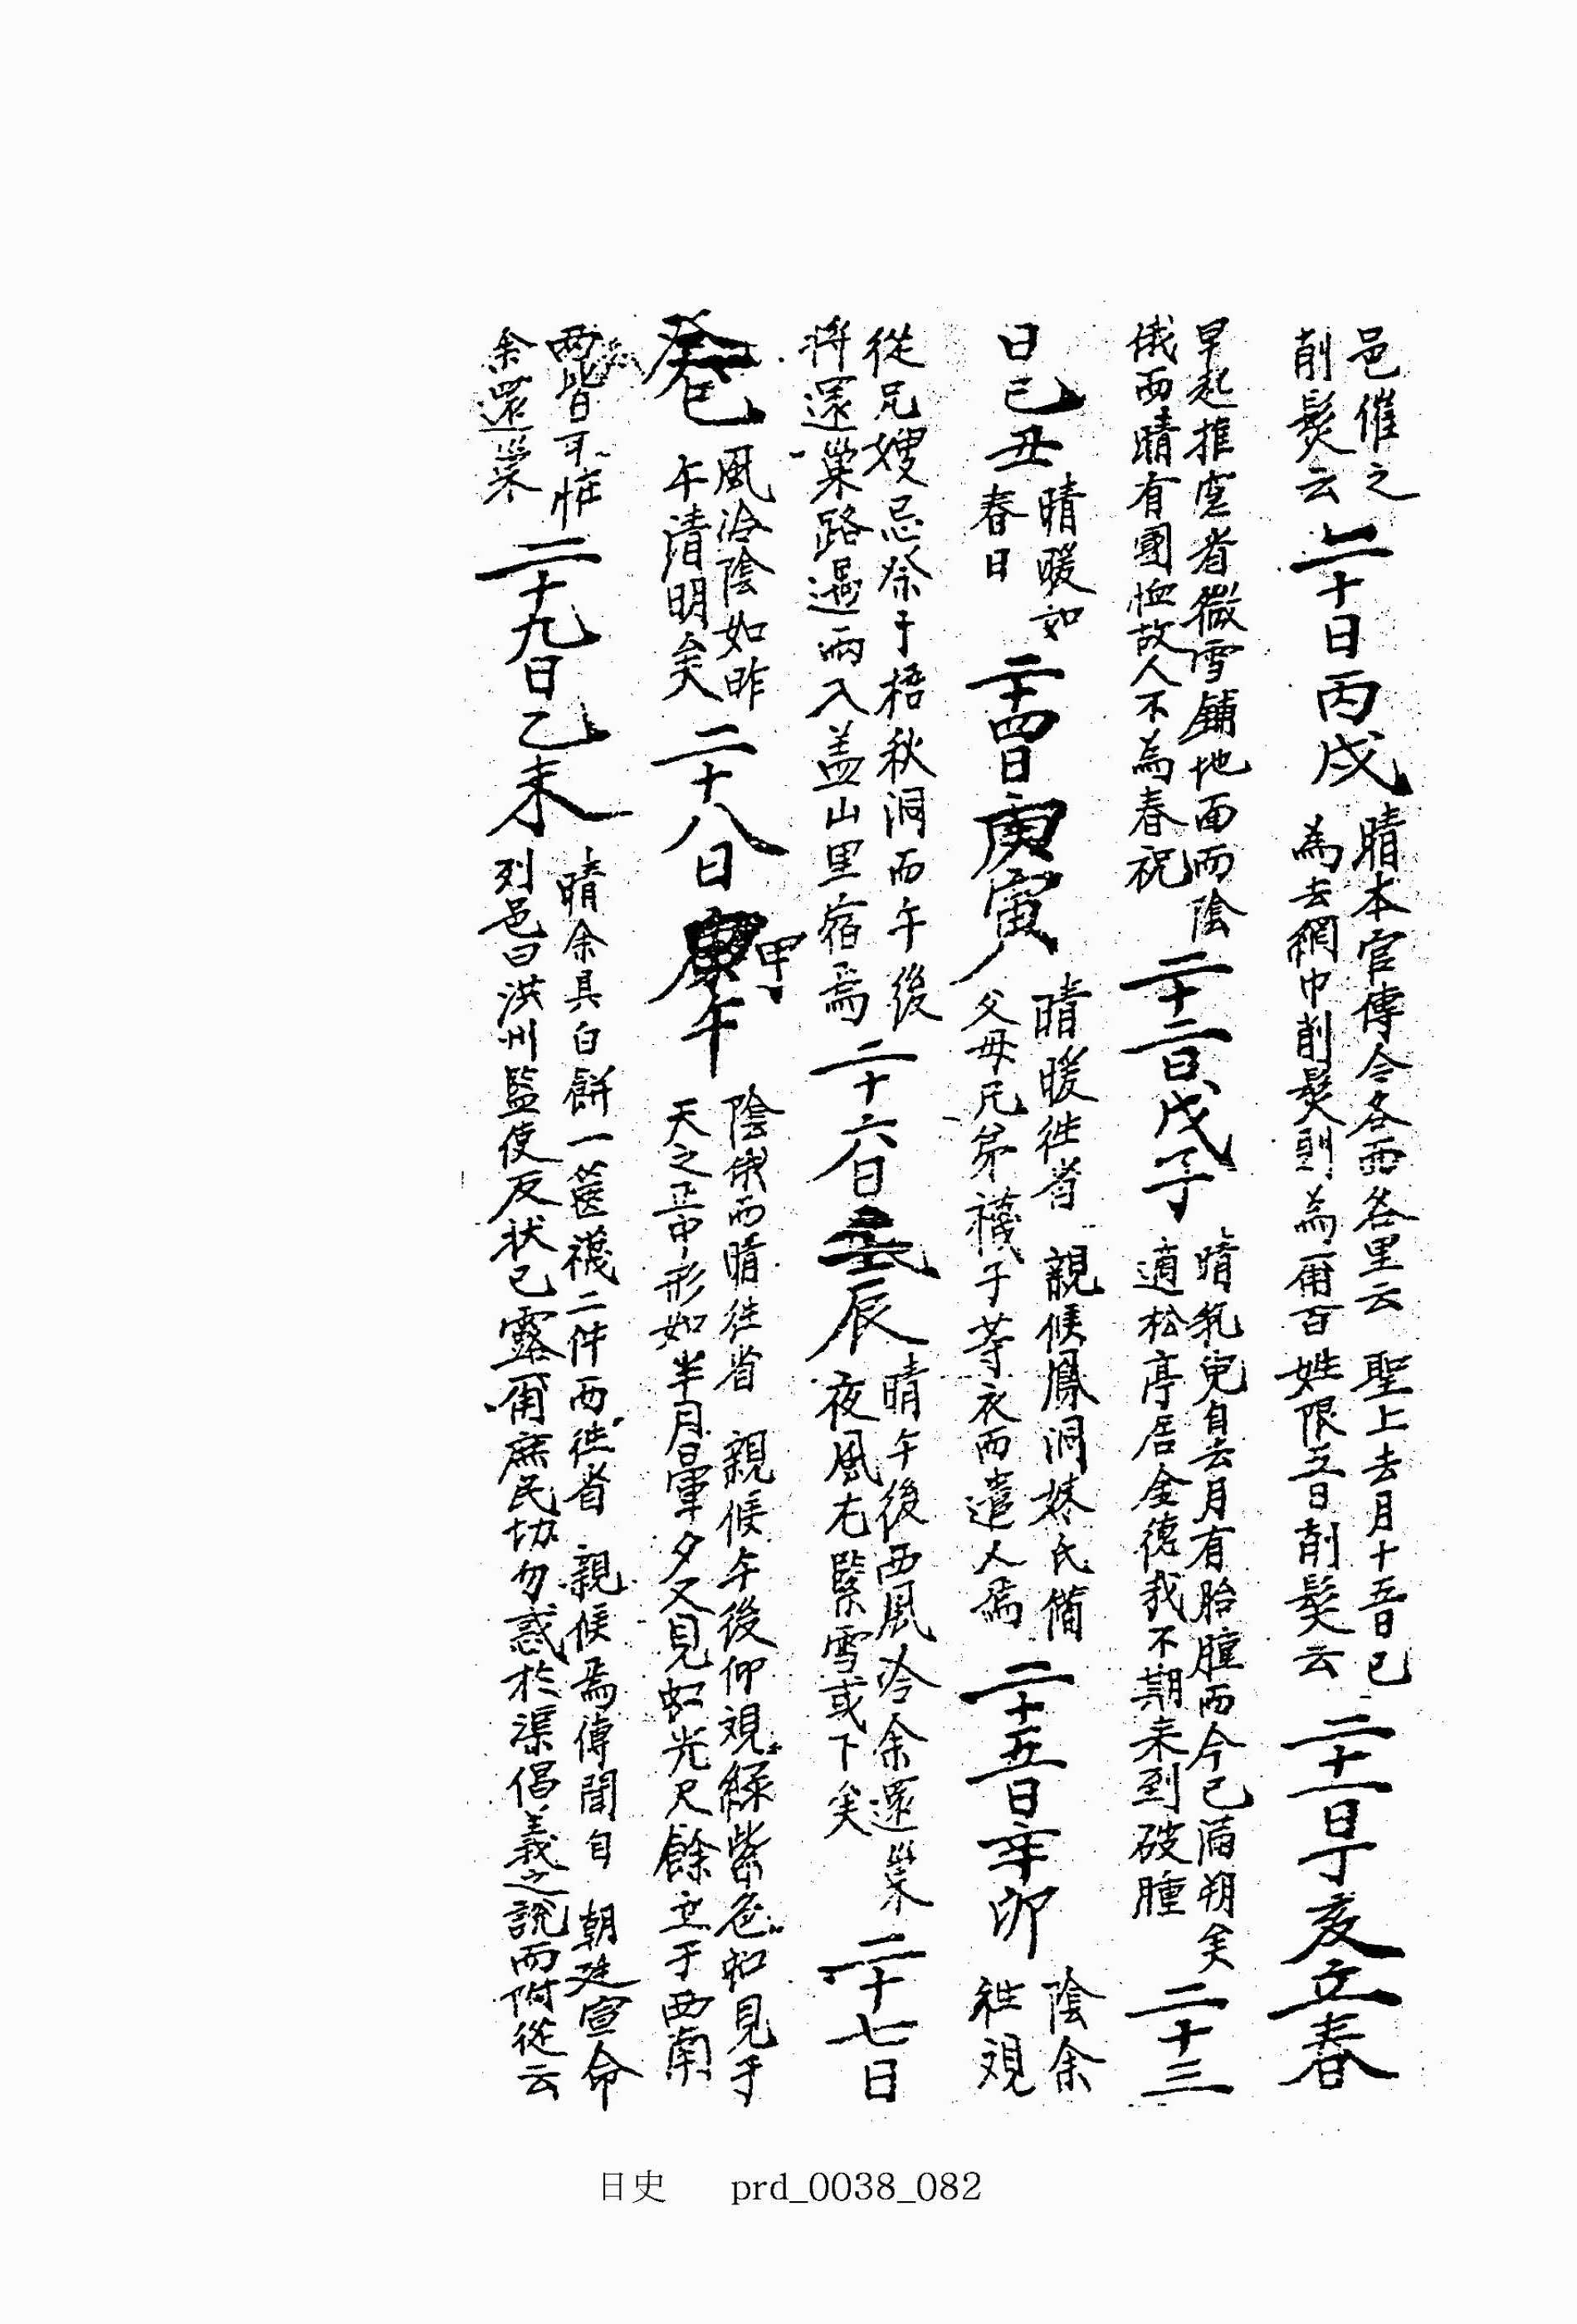 邑催之
削髮云
二十日丙戌
晴本官傳令各面各里云 聖上去月十五日已
為去網巾削髮則為爾百姓限五日削髮云
二十一日丁亥立春
早起推窓看微雪鋪地面而陰
俄而晴有國恤故人不為春祝
二十二日戊子
晴乳兒自去月有胎腫而今已滿朔矣
適松亭居金德我不期来到破腫
二十三
日己丑
晴暖如
春日
二十四日庚寅
晴暖徃省 親候鳳洞姊氏備
父母兄弟襪子等衣而遣人焉
二十五日辛卯
陰余
徃観
從兄嫂忌祭于梧秋洞而午後
将還巢路過雨入盖山里宿焉
二十六日壬辰
晴午後西風冷余還巢
夜風尤緊雪或下矣
二十七日
癸巳
風冷陰如昨
午清明矣
二十八日甲午
陰俄而晴徃省 親候午後仰視綠紫色虹見于
天之正中形如半月日暈夕又見虹光尺餘立于西南
兩皆可怪
余還巢
二十九日乙未
晴余具白餅一篋襪二件而徃省 親候焉傳聞自 朝廷宣命
列邑曰洪州監使反状已露爾庶民切勿惑於渠倡義之說而附從云
日史 prd_0038_082